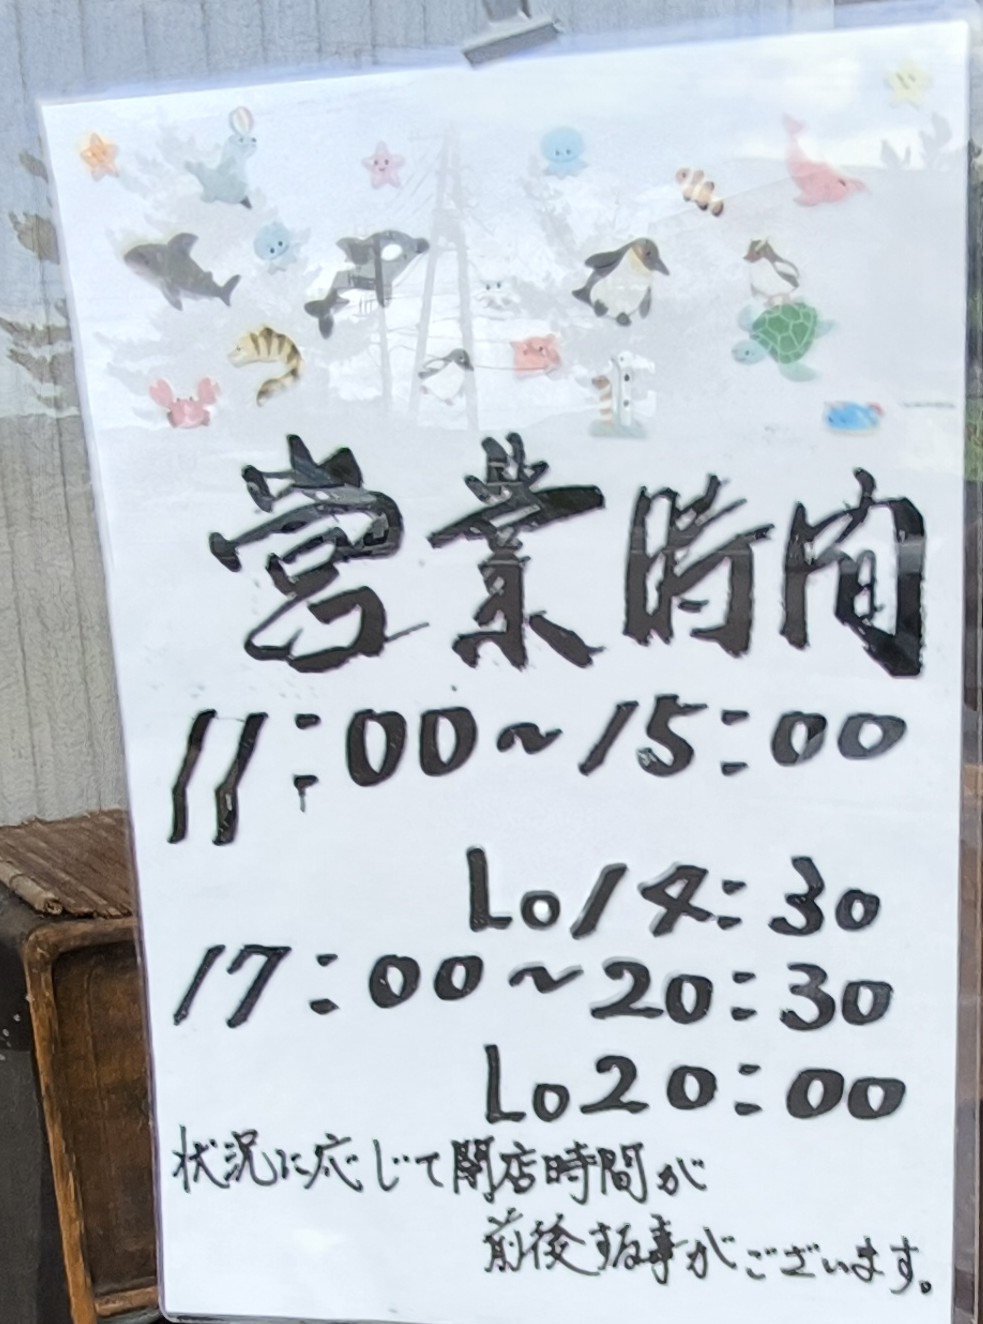 営業時間
11:00~15:00
Lo14:30
17:00~20:30
Lo20:00
状況に応じて開店時間が
前後する事がございます。